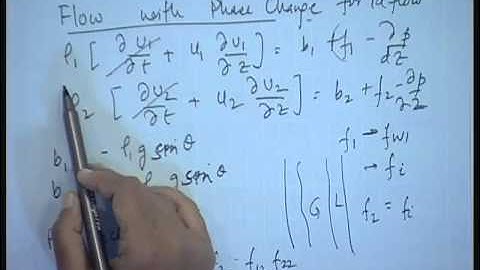 Flow with Phase Change for 1d flow
ρ₁ [ ∂u₁/∂t + u₁ ∂u₁/∂z ] = b₁ + f₁ - ∂p/∂z
ρ₂ [ ∂u₂/∂t + u₂ ∂u₂/∂z ] = b₂ + f₂ - ∂p/∂z
b₁ - ρ₁ g sinθ
f₁ → fw₁
b g sinθ
→ fi
G L
f₂ = fi
f₁₂ f₂₂